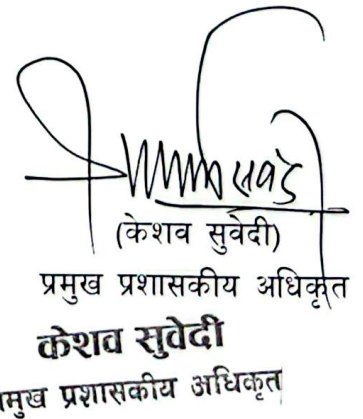 (केशव सुवेदी)
प्रमुख प्रशासकीय अधिकृत
केशव सुवेदी
प्रशासकीय अधिकृत